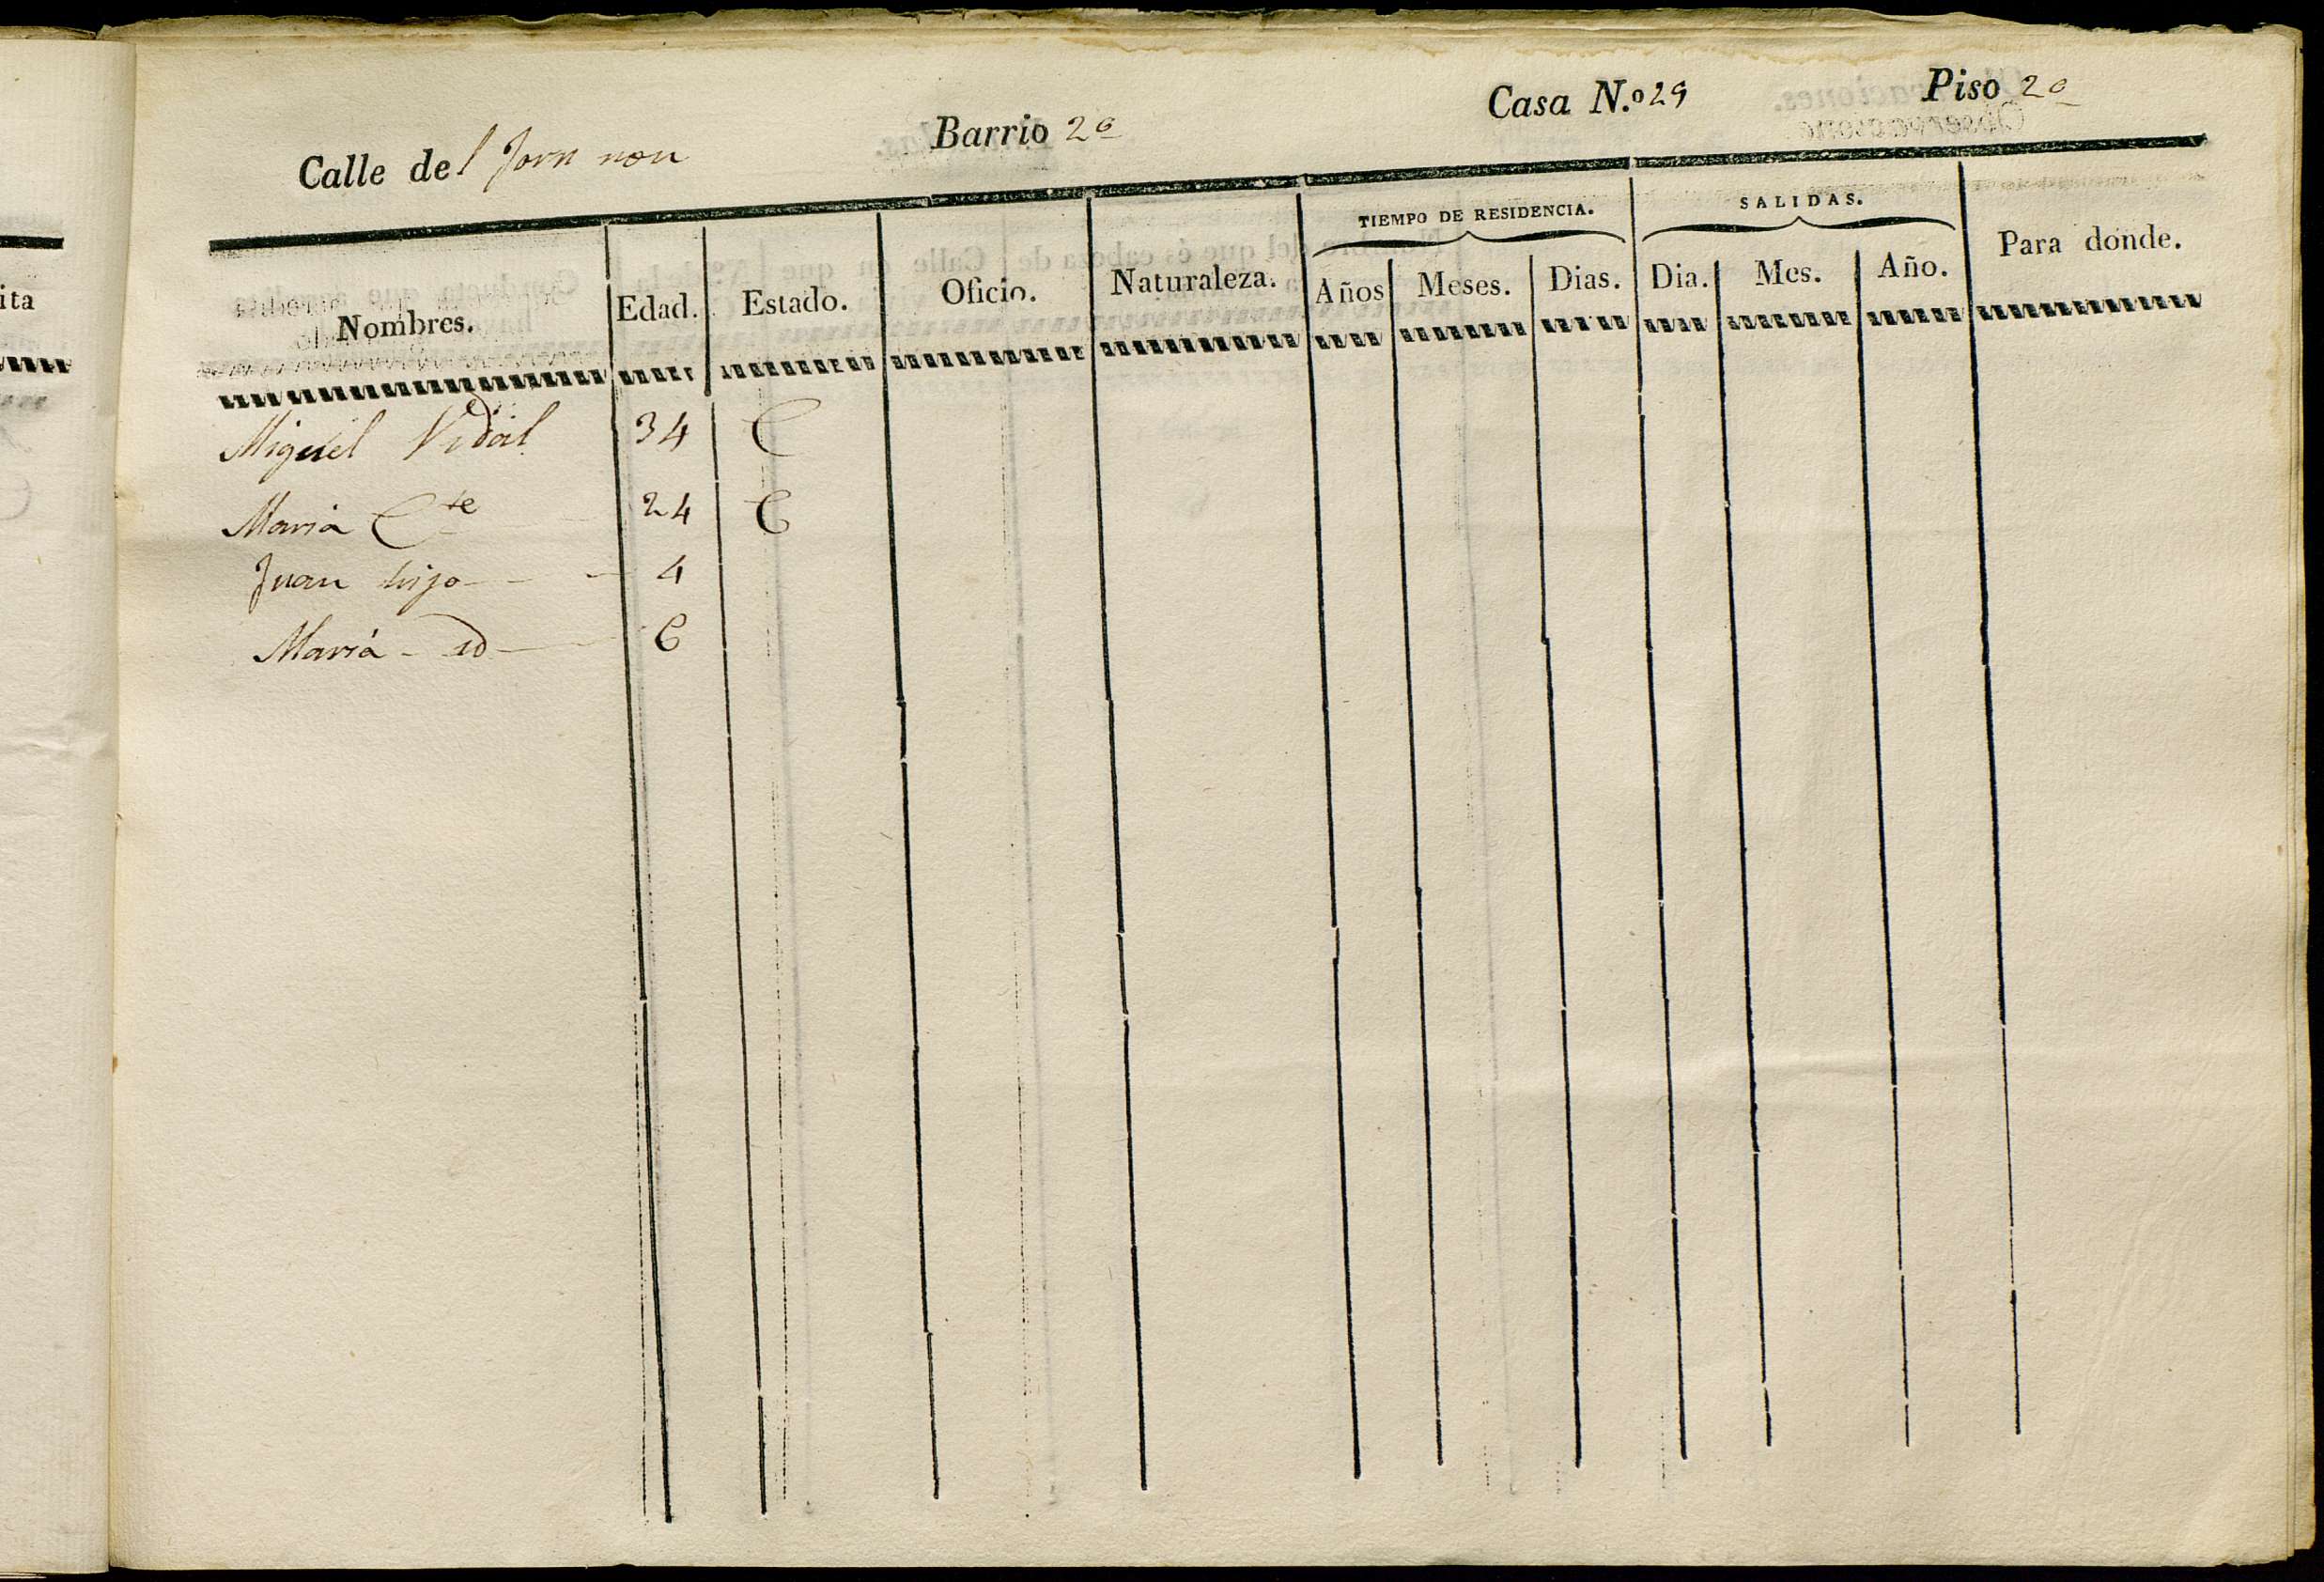 Calle del Forn nou Barrio 2º Casa N.º 29 Piso 2º
TIEMPO DE RESIDENCIA. SALIDAS.
Nombres. Edad. Estado. Oficio. Naturaleza. Años Meses. Dias. Dia. Mes. Año. Para donde.
Miguel Vidal 34 C
Maria Cte 24 C
Juan hijo 4
Maria id 6
ita